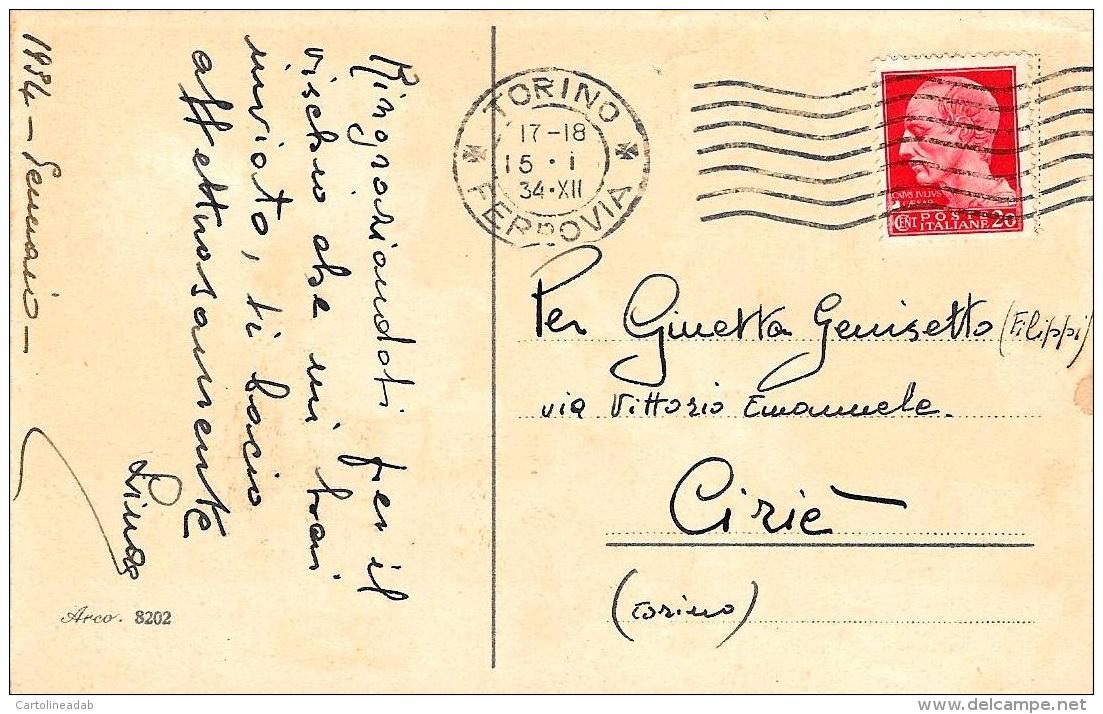 Ringraziandoti per il
vischio che mi hai
inviato, ti bacio
affettuosamente
Lina
1934 - Gennaio -
Arco. 8202
TORINO
17-18
15 • 1
34•XII
FERROVIA
CAIVS IVLIVS
CAESAR
CENT POSTE 20
ITALIANE
Per Ginetta Genisetto (Filippi)
via Vittorio Emanuele.
Ciriè
(Torino)
Cartolineadab
www.delcampe.net